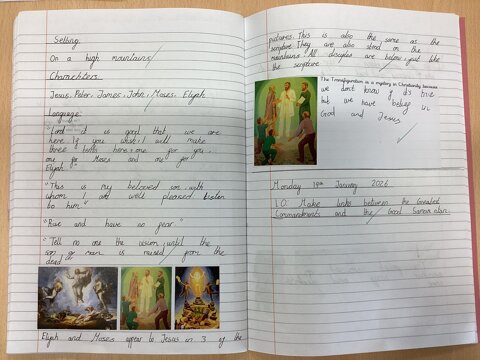 Setting:
On a high mountains
Charachters
Jesus, Peter, James, John, Moses, Elijah
Language:
"Lord it is good that we are
here. If you wish, I will make
three tents here; one for you,
one for Moses and one for
Elijah"
"This is my beloved son, with
whom I am well pleased. Listen
to him"
"Rise and have no fear"
"Tell no one the vision, until the
son of man is raised from the
dead"
Elijah and Moses appear to Jesus in 3 of the
pictures. This is also the same as the
scripture. They are also stood on the
mountains. All disciples are below, just like
the scripture
The Transfiguration is a mystery in Christianity because
we don't know if it's true
but we have belief in
God and Jesus
Monday January 2026
LO: Make links between the Greatest
Commandments and the Good Samaritan.